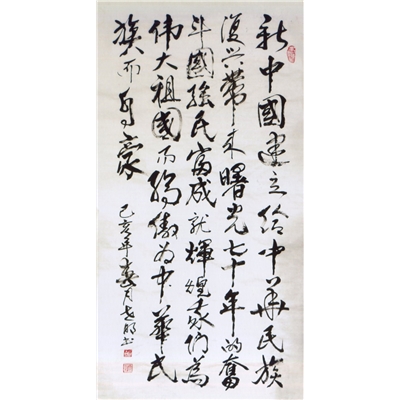 新中國建立给中華民族
復兴帶来曙光七十年的奮
斗國強民富成就輝煌我们為
伟大祖國而骄傲为中華民
族而自豪
己亥年夏月